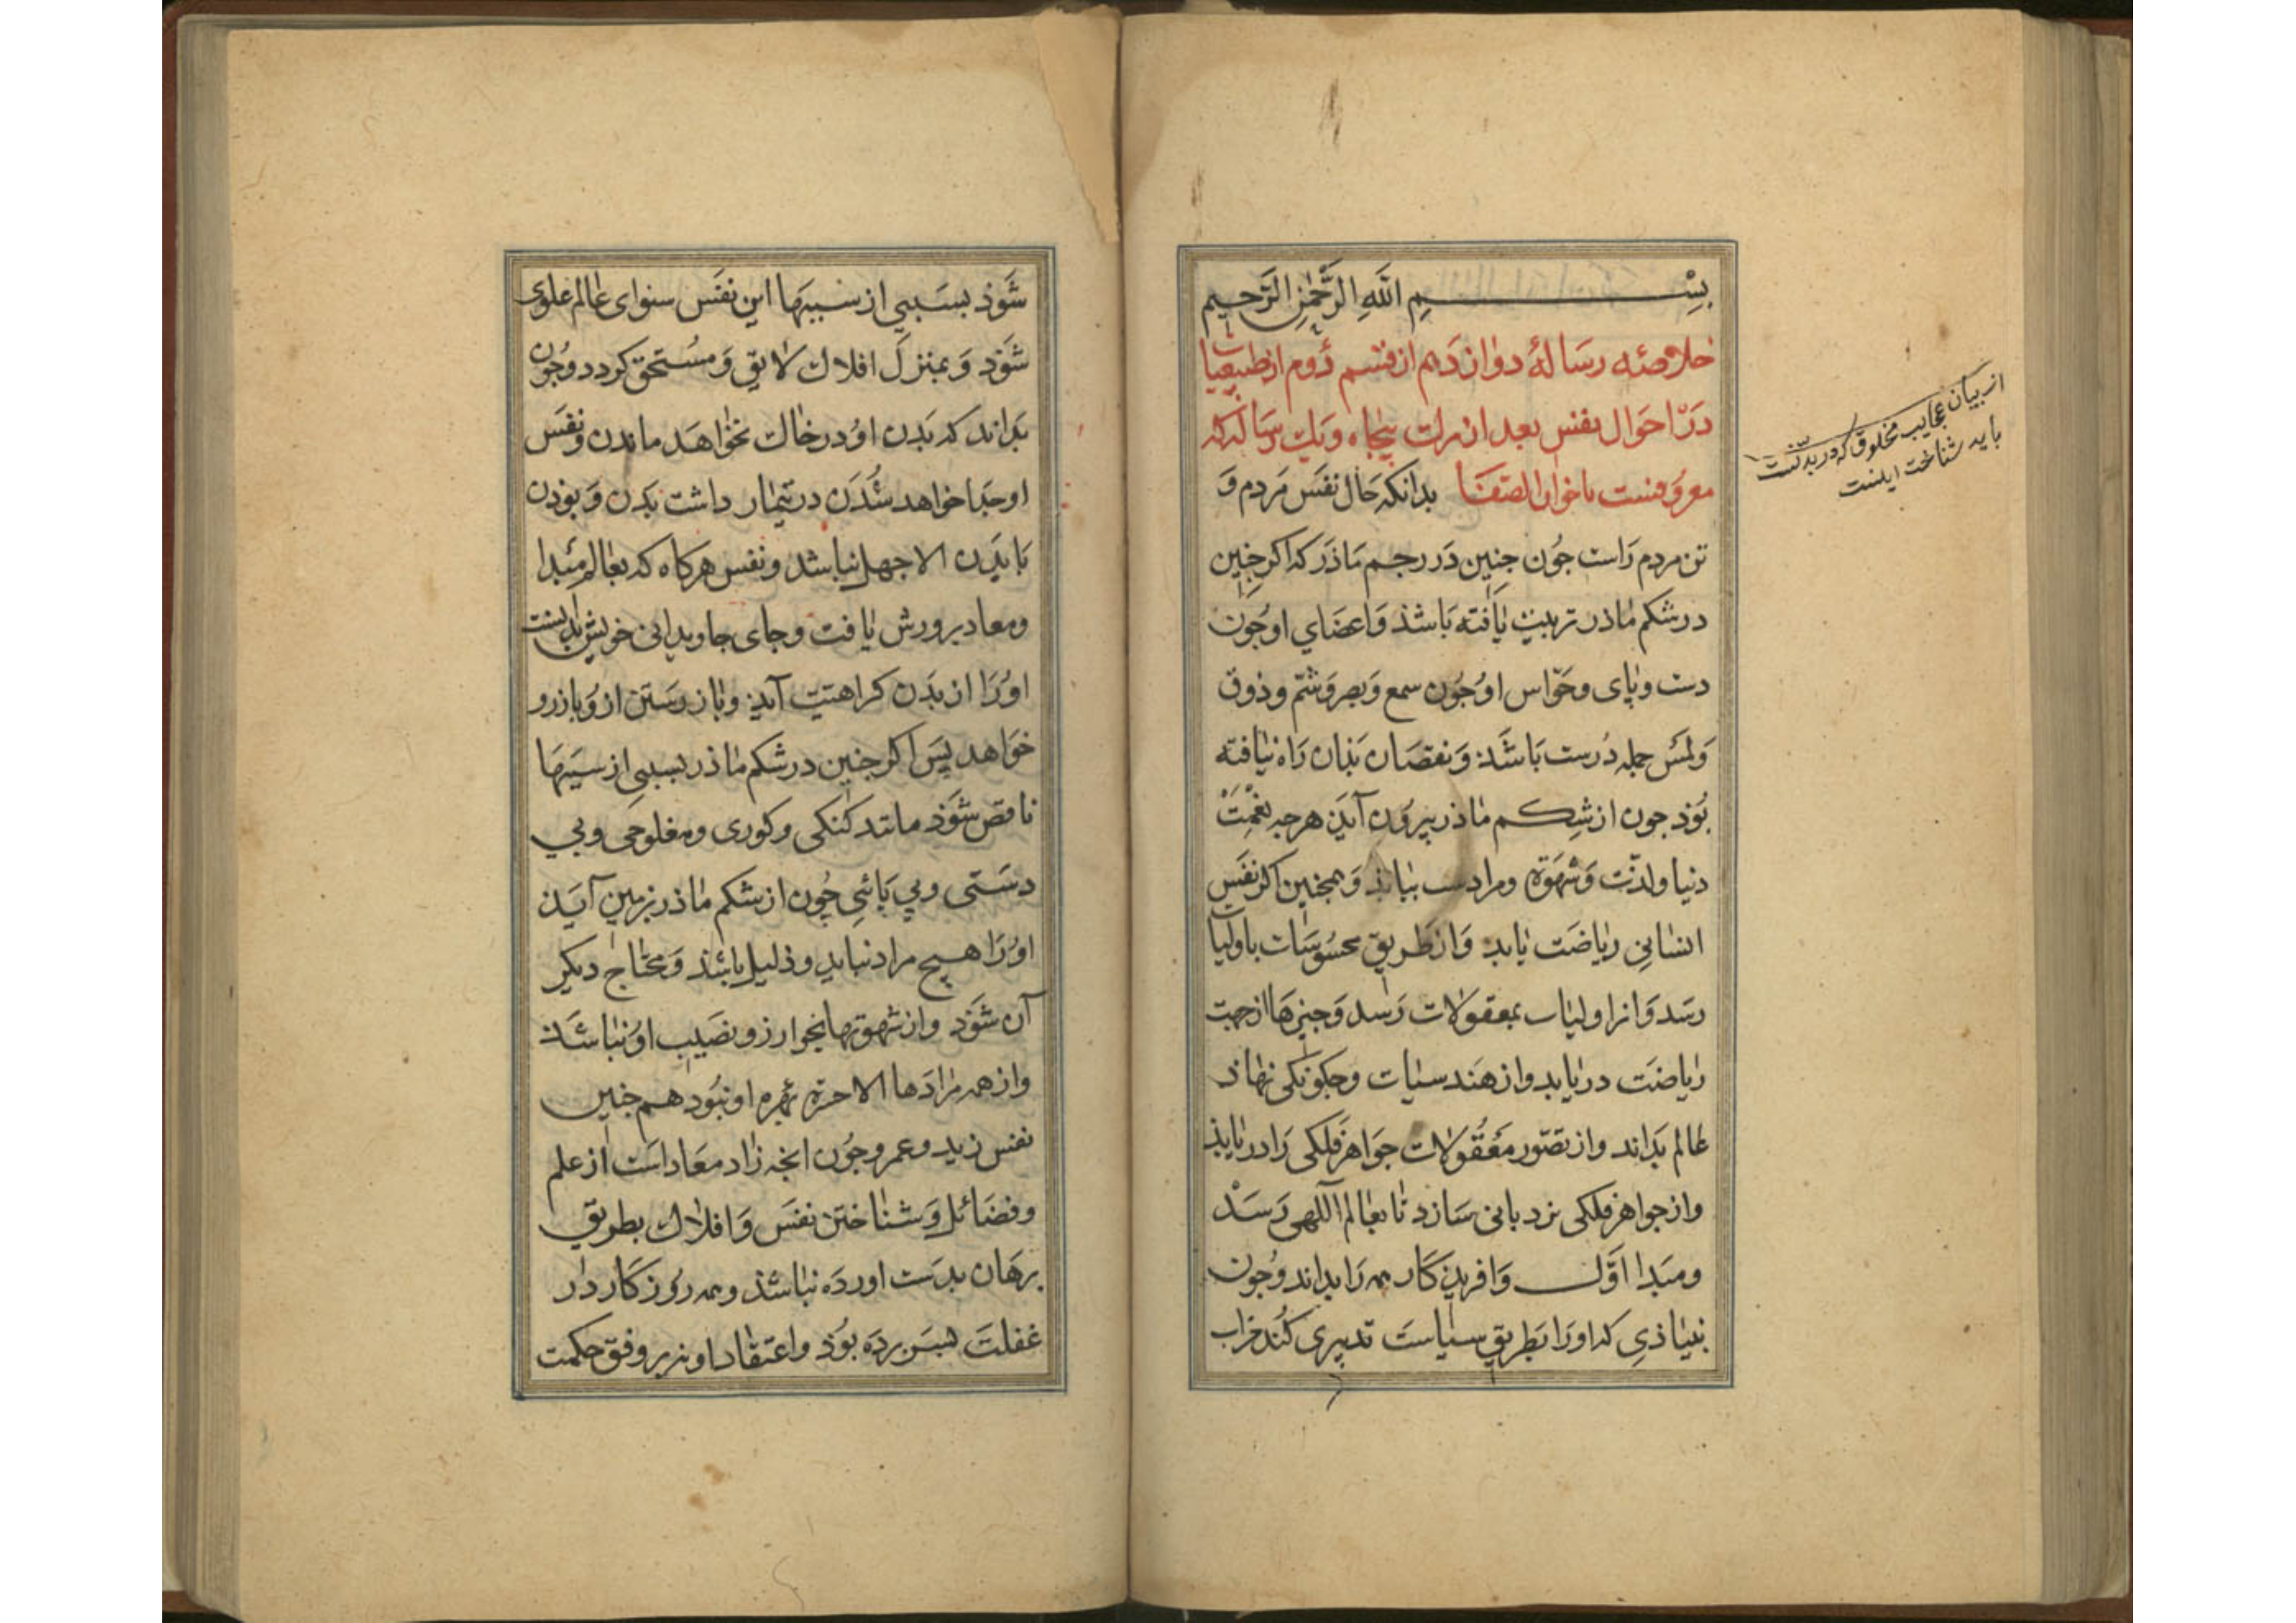 بِسْمِ اللَّهِ الرَّحْمٰنِ الرَّحِيم
خلاصهٔ رسالهٔ دوازدهم از قسم دُوم از طبیعیات
دَرْ احوال نفس بعد از مرك پنجاه ویك رساله که
معروفست باخوان الصفا بدانکه حال نفس مردم وَ
تن مردم رَاست جُون جنین دَر رحم ماذر که اکر جنین
در شکم ماذر تربیت یافته بَاشذ وَاعضَاي او جُون
دست وپای وحَوّاس او جُون سمع وَبصر وَشَمّ وذوق
وَلمَس جمله دُرست بَاشَذ وَنقصَان بَذان رَاه نیَافته
بُوذ جون از شِکم ماذر بیرُون آیَذ هرجه نِعْمَتْ
دنیا ولذّت وَشهوَة ومرادست بیابذ وَهمجنین اکر نفَس
انسَانِی ریَاضَت یابد وَاز طَریق محسُوسَات باولیات
رسَد وَاز اولیات بمعقولات رَسد وَجیزهَا از جهت
ریاضَت دریابد واز هَندسیَات وجکونکی نهاذ
عالم بَداند واز تصّور مَعْقُولات جَوَاهر فلکی رَا دریابذ
واز جواهر فلکی نردبانی سَازد تا بعَالم آلٰهی رَسَدْ
ومبَدا اوّل وَافریذکار همه رَا بداند وَجُون
بنیَاذی که اورَا بَطریق سیَاست تدبیری کُند خراب
از بیان عجایب مخلوق که در بدنست
باید شناخت اینست
شَوَذ بسَببي از سببهَا این نفَس سوای عَالم علوی
شَوَد وَبمنزل افلاك لایق وَمسُتحق کردد وجُون
بَداند که بَدن اوُ در خاك نخواهَد ماندن ونفَس
او جدا خواهد شُدَن در تیمار داشت بَدن وَبوذن
بَا بَدن الا جهل نباشد ونفس هرکاه که بعَالم مَبدا
ومعاد پرورش یافت وجای جاویدانی خویش بدانست
اوُرَا از بَدن کراهتیت آیَذ وباز رستن از وُ بازرو
خوَاهد پس اکر جنین در شکم ماذر بسببي از سببهَا
ناقص شَوَذ مانند کنکی وکوری ومفلوجی وبي
دستی وبي پَائي جُون از شکم ماذر بزمین آیَذ
اوُرَا هیچ مراد نیابد وذلیل باشَذ وَمحتاج دیکر
آن شَوَد واز شهوتها بجز ارزو نصَیب اوُ نباشَذ
واز همه مرادَها الا حسرة بهره او نبُود هم جنین
نفس زید وعمرو جُون انجه زاد معَاداست از علم
وفضَائل وَشناختن نفسَ وَافلاك بطریق
برهَان بدسَت اورده نباشَذ وهمه رُوزکار در
غفلتَ بسَر بردَه بُوَذ واعتقاد او نه بر وفق حکمت